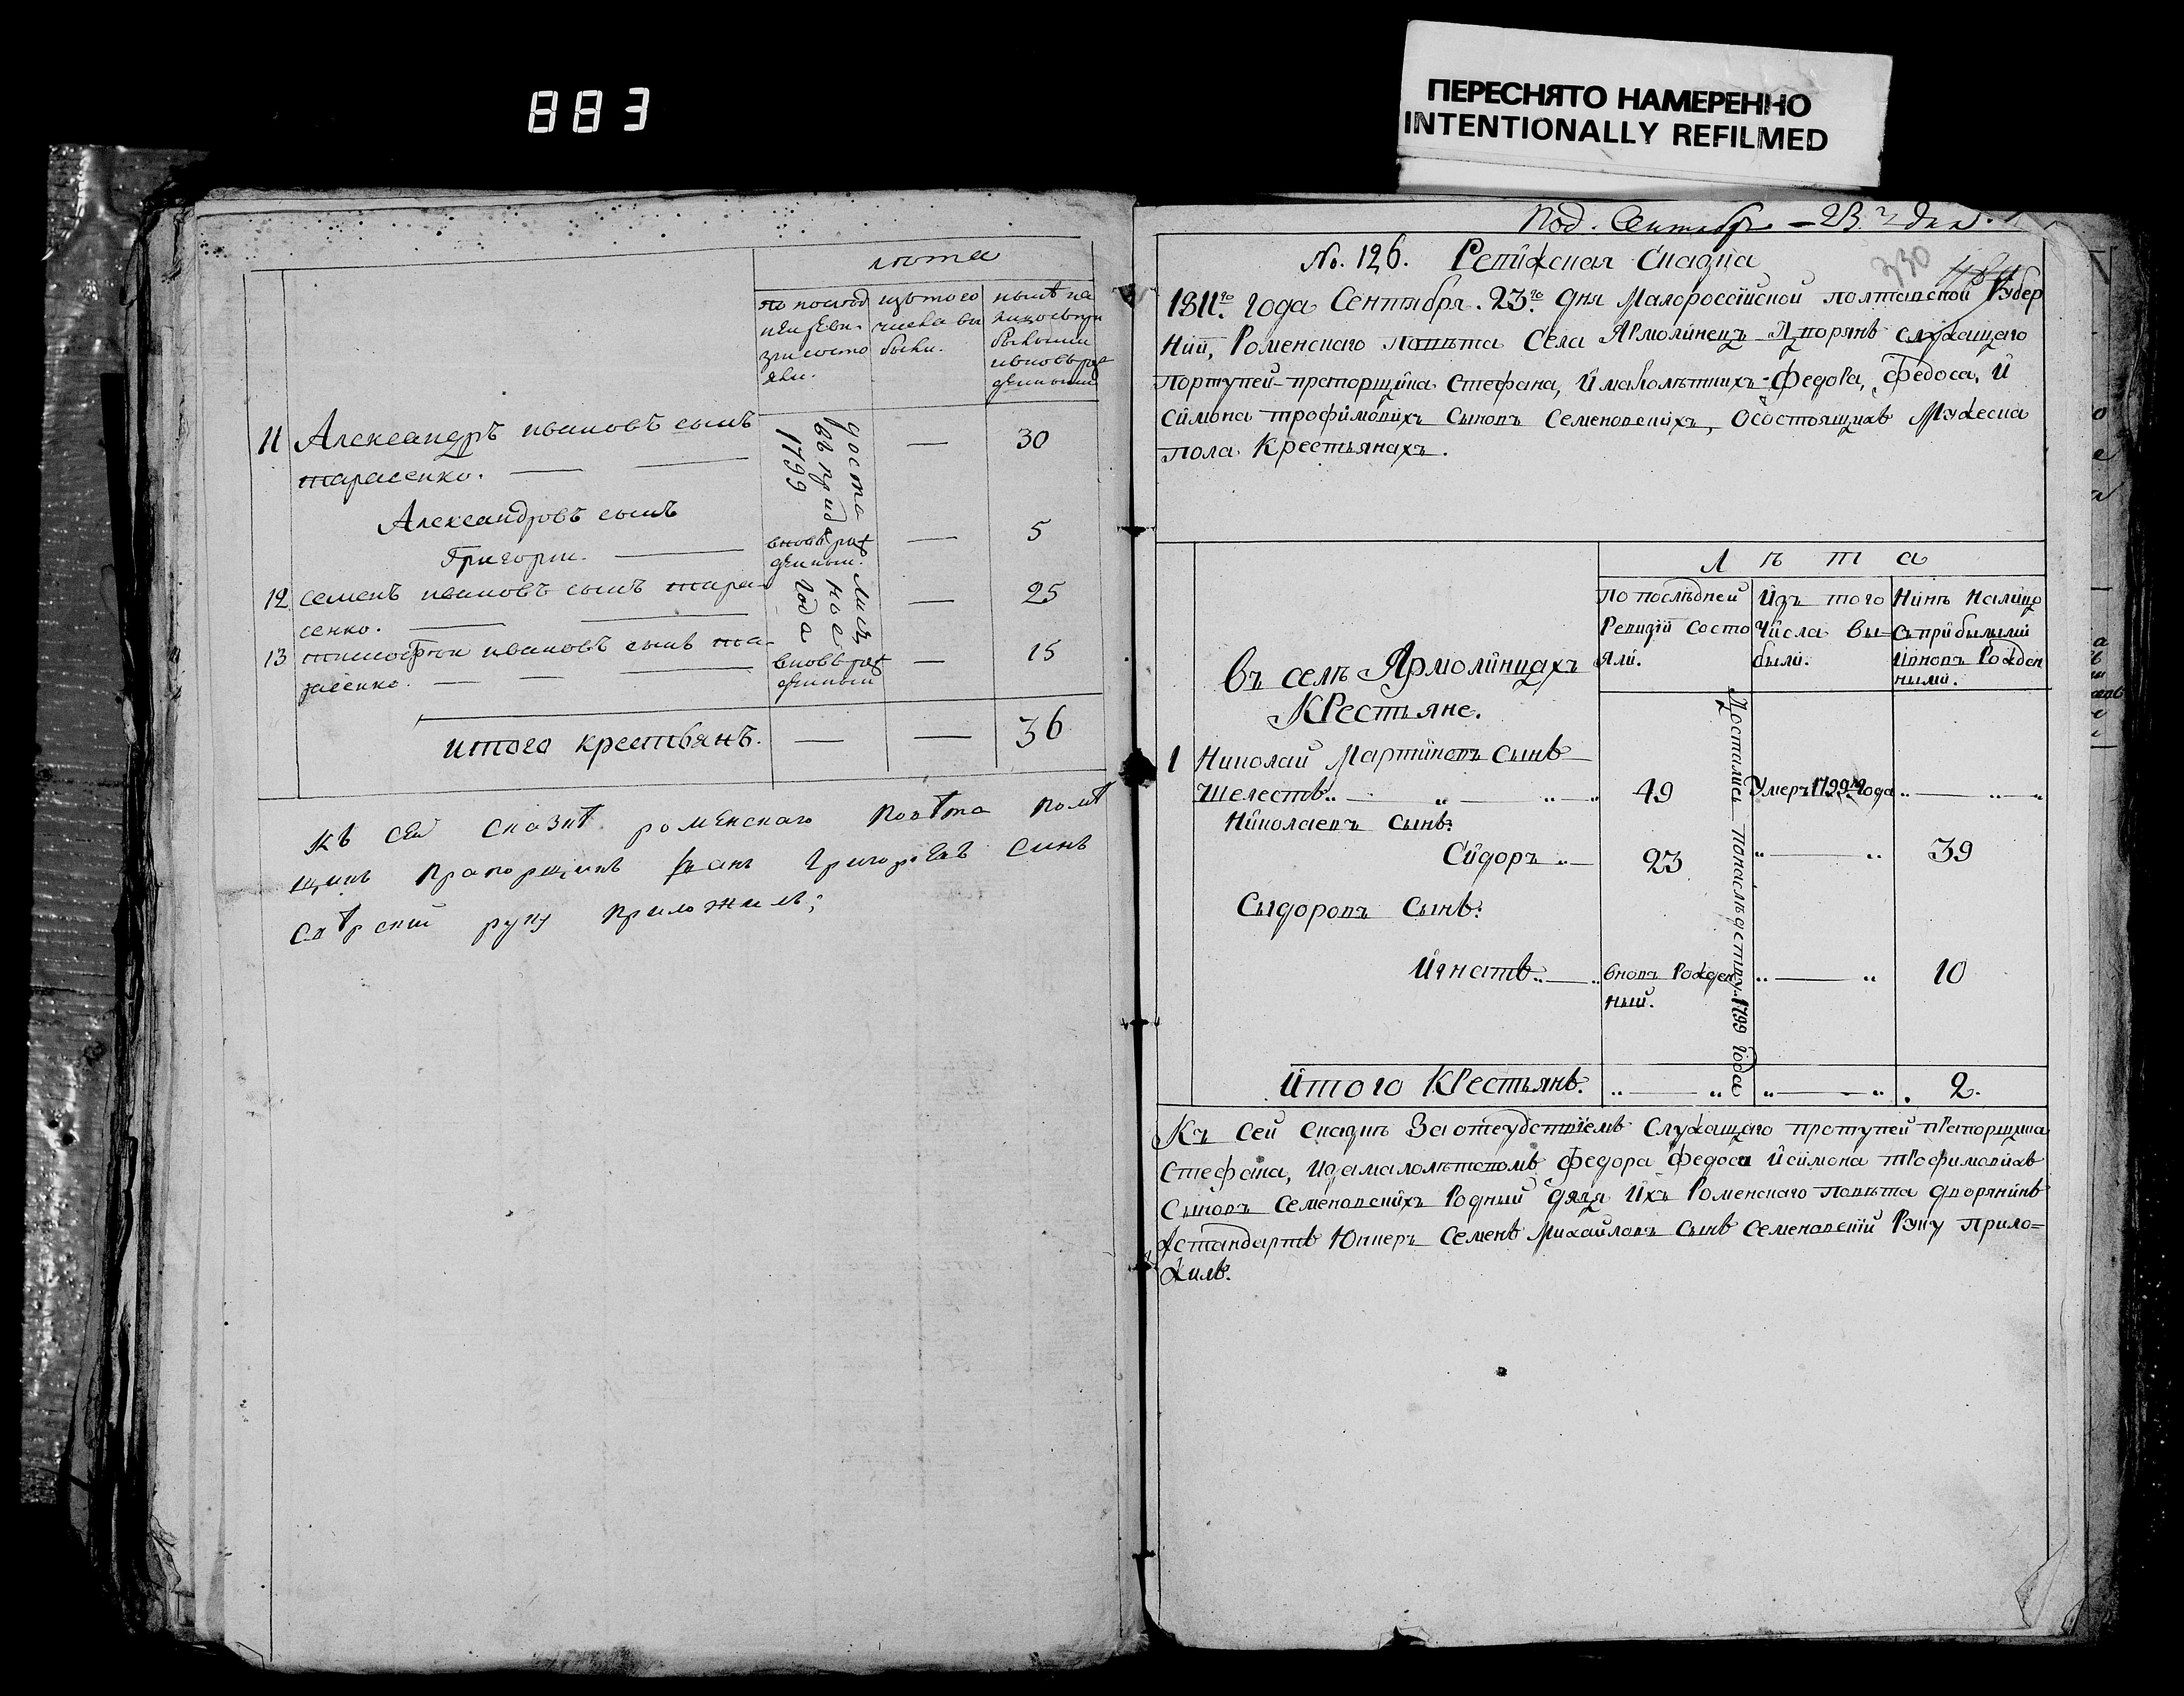 883
ПЕРЕСНЯТО НАМЕРЕННО
INTENTIONALLY REFILMED
лѣта
по послѣд
ней реви-
зіи состо
яли.
изъ того
числа вы
были.
нынѣ на
лицо съ при
былыми
и вновь рож
денными
11 Александръ ивановъ сынъ
тарасенко.
досталися
въ приданое
1799 года
— 30
Александровъ сынъ
Григорій.
вновь рож
денный. — 5
12 семенъ ивановъ сынъ тара-
сенко. — 25
13 тимофей ивановъ сынъ та-
расенко.
вновь рож
денный — 15
итого крестьянъ. — — 36
къ сей сказкѣ роменскаго повѣта помѣ
щикъ прапорщикъ Григорьевъ синъ
руку приложилъ;
Под. Сентабр - 23 г дня
330
№. 126. Ревижская Сказка
1811го. Года Сентября. 23го дня Малороссійской полтавской Губер
ніи, Роменскаго повѣта Села Ярмолинецъ Дворянъ служащаго
портупей-прапорщика стефана, и малолѣтнихъ Федора, Федоса, и
симона трофимовихъ сыновъ Семеновскихъ, о состоящихъ Мужеска
пола Крестьянахъ.
Лѣта
По послѣдней
Ревизіи состо
яли.
Изъ того
Числа вы-
были.
Нинѣ налицо
съ прибылыми
и вновь Рожден
ными.
въ селѣ Ярмолинцахъ
Крестьяне.
Достались по наслѣдству 1799 года
1 Николай Мартиновъ сынъ
Шелестъ. 49 Умеръ 1799го года
Николаевъ сынъ:
Сидоръ 23 39
Сыдоровъ сынъ:
Игнатъ. вновь Рожден
ный. 10
Итого Крестьянъ. 2.
Къ сей сказкѣ за отсудствіемъ служащаго протупей прапорщика
стефана, и за малолѣтствомъ федора федоса и симона трофимовихъ
сыновъ семеновскихъ Родный дядя ихъ Роменскаго повѣта дворянинъ
жстандартъ Юнкеръ Семенъ Михайловъ сынъ семеновскій Руку прило=
жилъ.